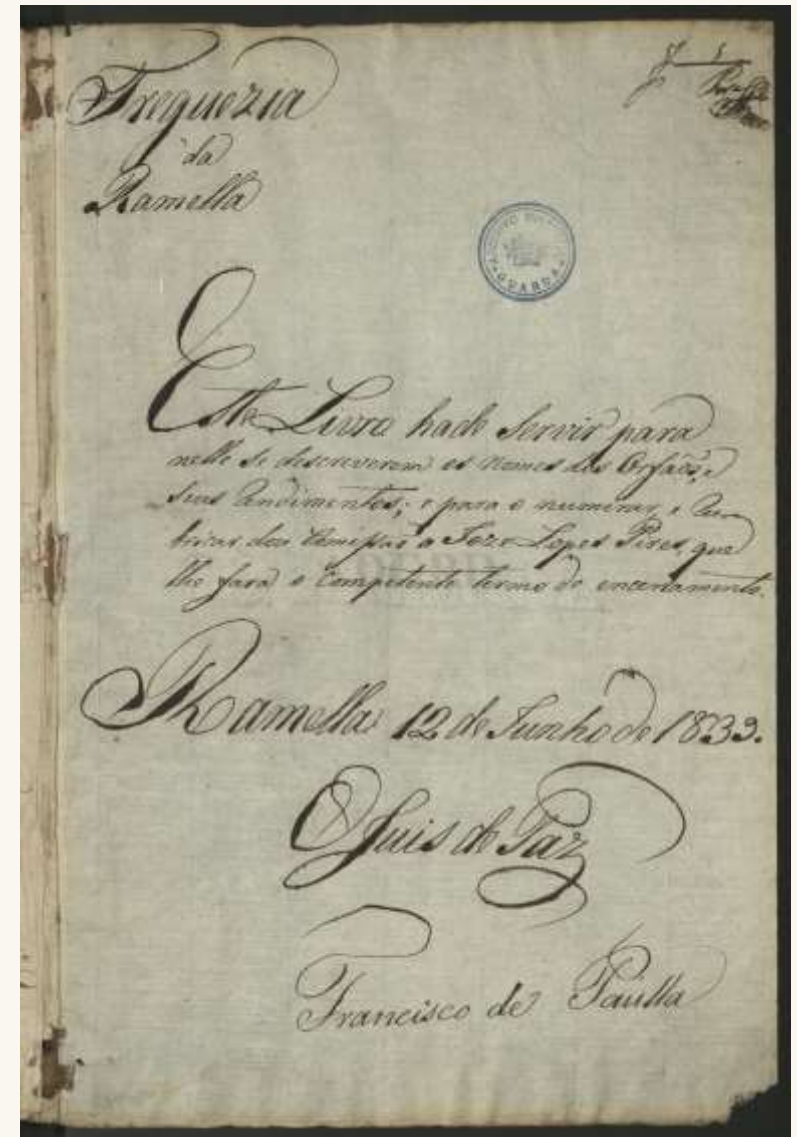 Freguezia
da
Ramella
Este Livro hade Servir para
nelle se descreverem os nomes dos Orfaõs, e
seus Rendimentos; e para o numerar, e Ru-
bricar dou Comissaõ a Joze Lopes Pires, que
lhe fara o competente termo de encerramento.
Ramella 12 de Junho de 1839.
O Juis de Paz
Francisco de Paulla
GUARDA